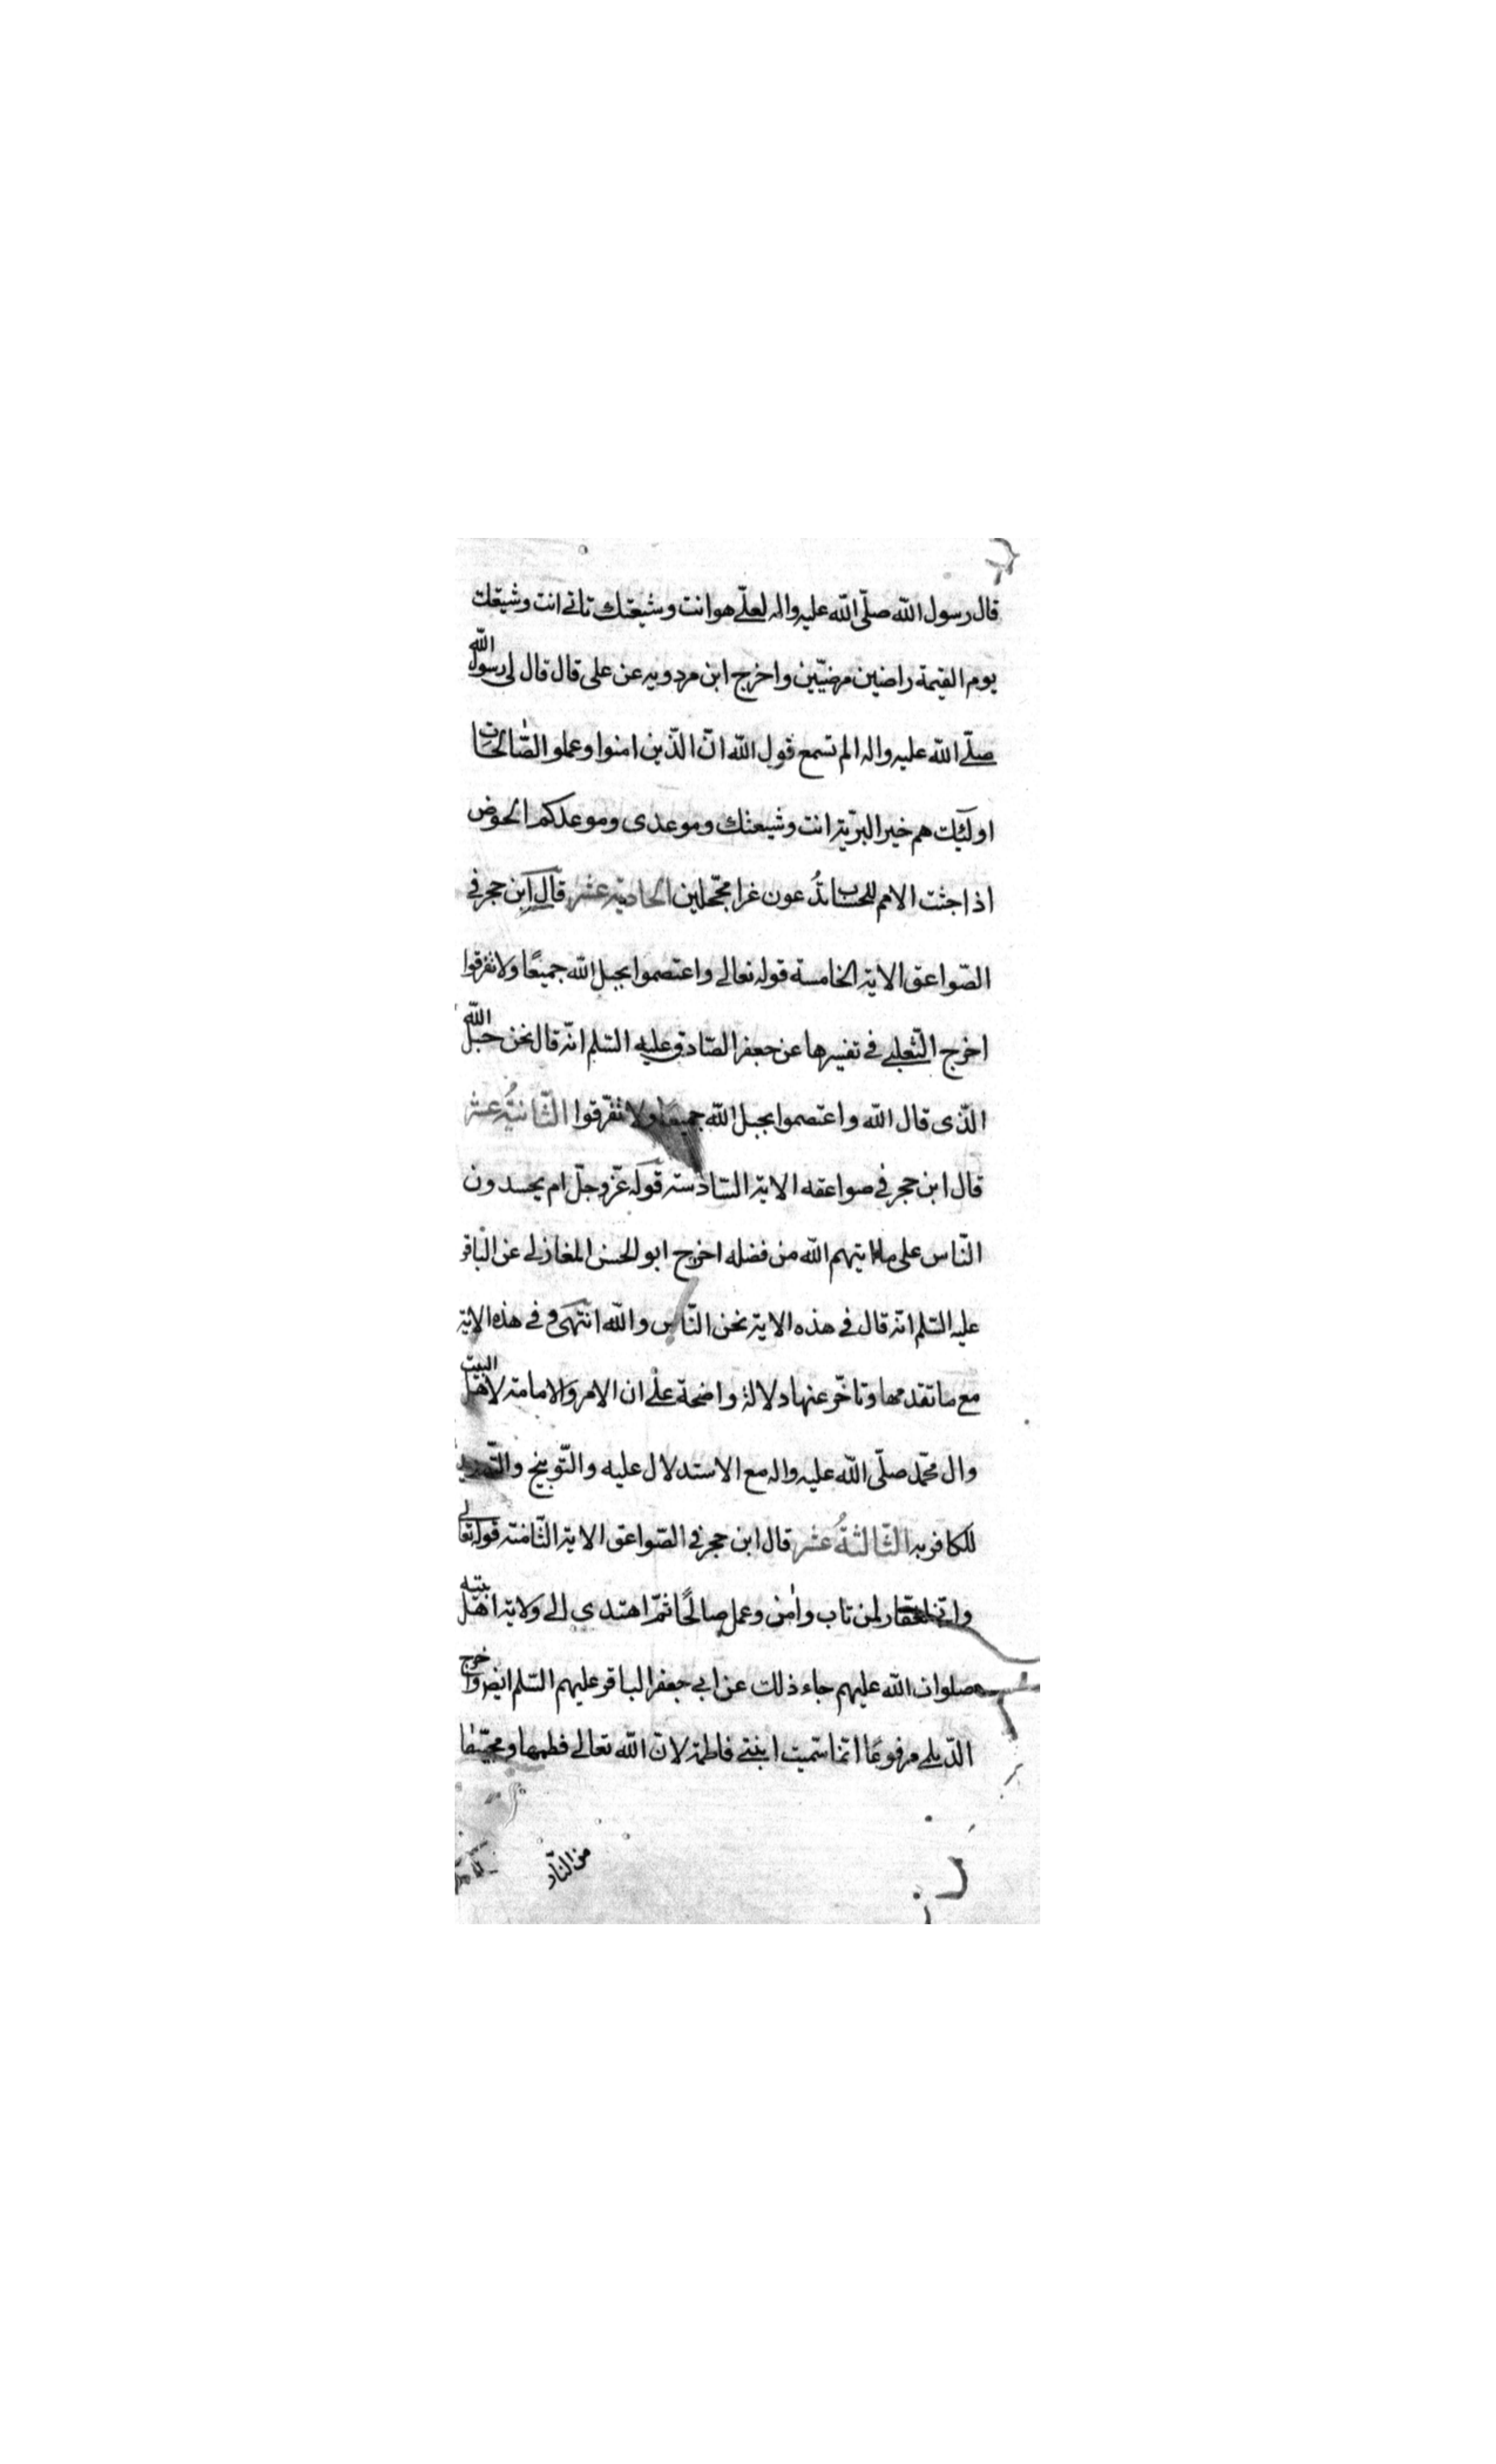 قال رسول الله صلّى الله عليه واله لعلّي هو انت وشيعتك تاتي انت وشيعتك
يوم القيمة راضين مرضيّين واخرج ابن مردويه عن على قال قال لى رسول الله
صلّى الله عليه واله الم تسمع قول الله انّ الّذين امنوا وعملو الصّالحات
اولئك هم خير البريّة انت وشيعتك وموعدى وموعدكم الحوض
اذا جئت الامم للحساب تُدعون غرا محجّلين الحادية عشر قال ابن حجر في
الصّواعق الاية الخامسة قوله تعالى واعتصموا بحبل الله جميعًا ولا تفرقوا
اخرج الثّعلبي في تفسيرها عن جعفر الصّادق عليه السّلم انّه قال نحن حبل الله
الّذى قال الله واعتصموا بحبل الله جميعًا ولا تفرّقوا الثّانيةُ عشر
قال ابن حجر في صواعقه الاية السّادسة قوله عزّ وجلّ ام يحسدون
النّاس على ما اتيهم الله من فضله اخرج ابو الحسن المغازلي عن الباقر
عليه السّلم انّه قال في هذه الاية نحن النّاس والله انتهى و في هذه الاية
مع ما تقدمها وتاخّر عنها دلالة واضحة على ان الامر والامامة لاهل البيت
وال محمّد صلّى الله عليه واله مع الاستدلال عليه والتّوبيخ
للكافر به الثّالثةُ عشر قال ابن حجر في الصّواعق الاية الثّامنة قوله تعالى
وانّى لغفّار لمن تاب وامن وعمل صالحًا ثمّ اهتدى الى ولاية اهل بيته
صلوات الله عليهم جاء ذلك عن ابي جعفر الباقر عليهم السّلم ايضا واخرج
الدّيلمي مرفوعًا انّما سمّيت ابنتي فاطمة لانّ الله تعالى فطمها ومحبّيها
من النّار